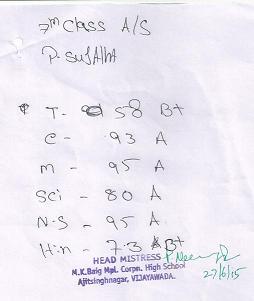 7th Class A/S
P. SUJATHA
T - 58 B+
E - 93 A
M - 95 A
Sci - 80 A
N.S - 95 A
Hin - 73 B+
HEAD MISTRESS
M.K.Baig Mpl. Corpn. High School
Ajitsinghnagar, VIJAYAWADA.
27/6/15